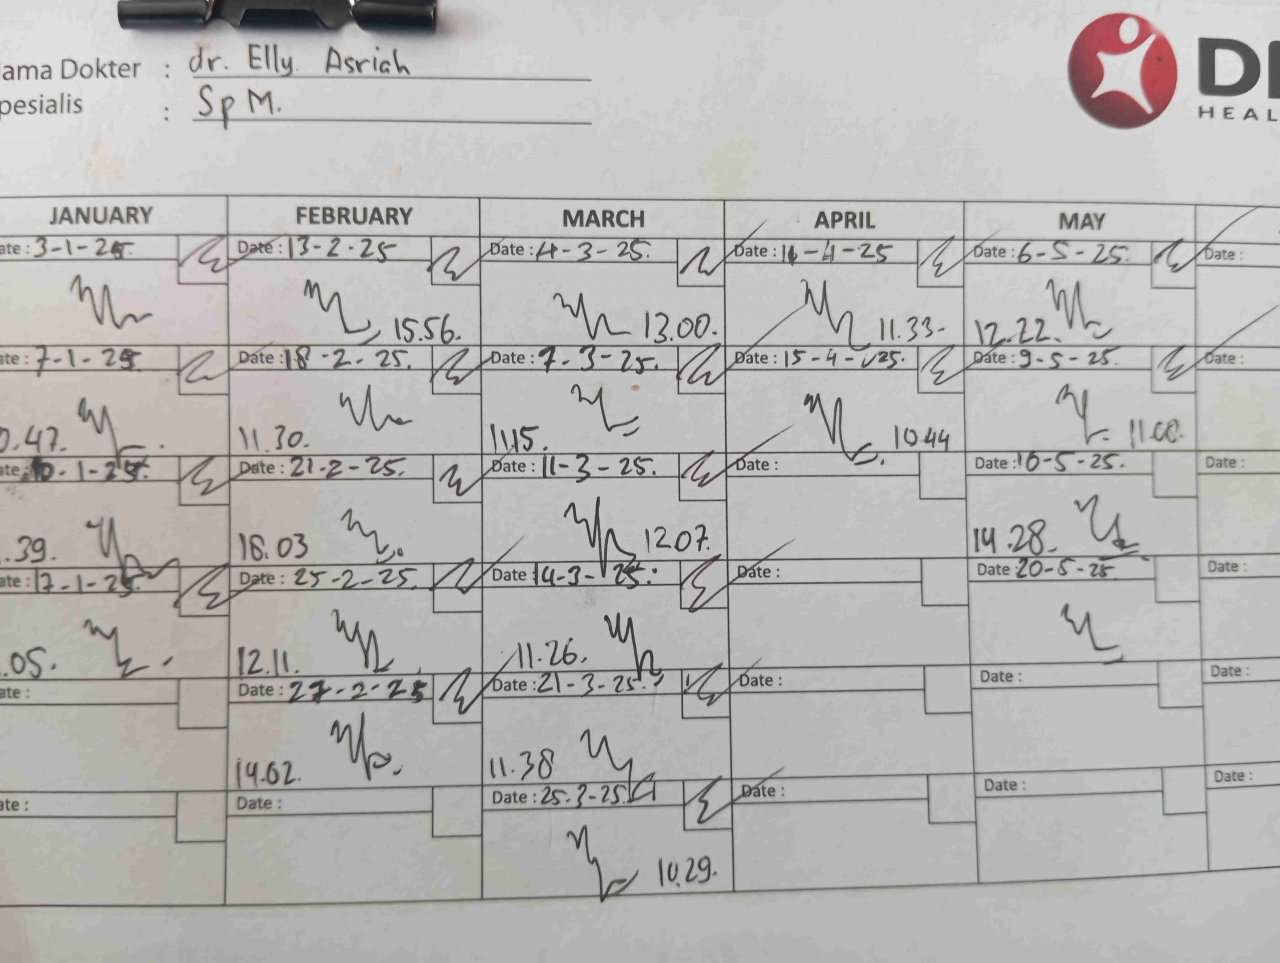 ama Dokter : dr. Elly Asriah
pesialis : Sp M.
HEAL
JANUARY FEBRUARY MARCH APRIL MAY
ate : 3-1-25. Date : 13-2-25 Date : 4-3-25. Date : -4-25 Date : 6-5-25. Date :
15.56. 13.00. 11.33. 12.22.
ate : 7-1-25 Date : 18-2-25. Date : 7-3-25. Date : 15-4-25. Date : 9-5-25. Date :
0.47. 11.30. 11.15. 10.44 11.00.
ate : 10-1-25. Date : 21-2-25. Date : 11-3-25. Date : Date : 10-5-25. Date :
.39. 12.07. 14.28.
ate : 17-1-25. Date : 25-2-25. Date 14-3-25. Date : Date 20-5-25 Date :
.05. 12.11. 11.26.
ate : Date : 27-2-25 Date : 21-3-25. Date : Date : Date :
14.02. 11.38
ate : Date : Date : 25-3-25. Date : Date : Date :
10.29.